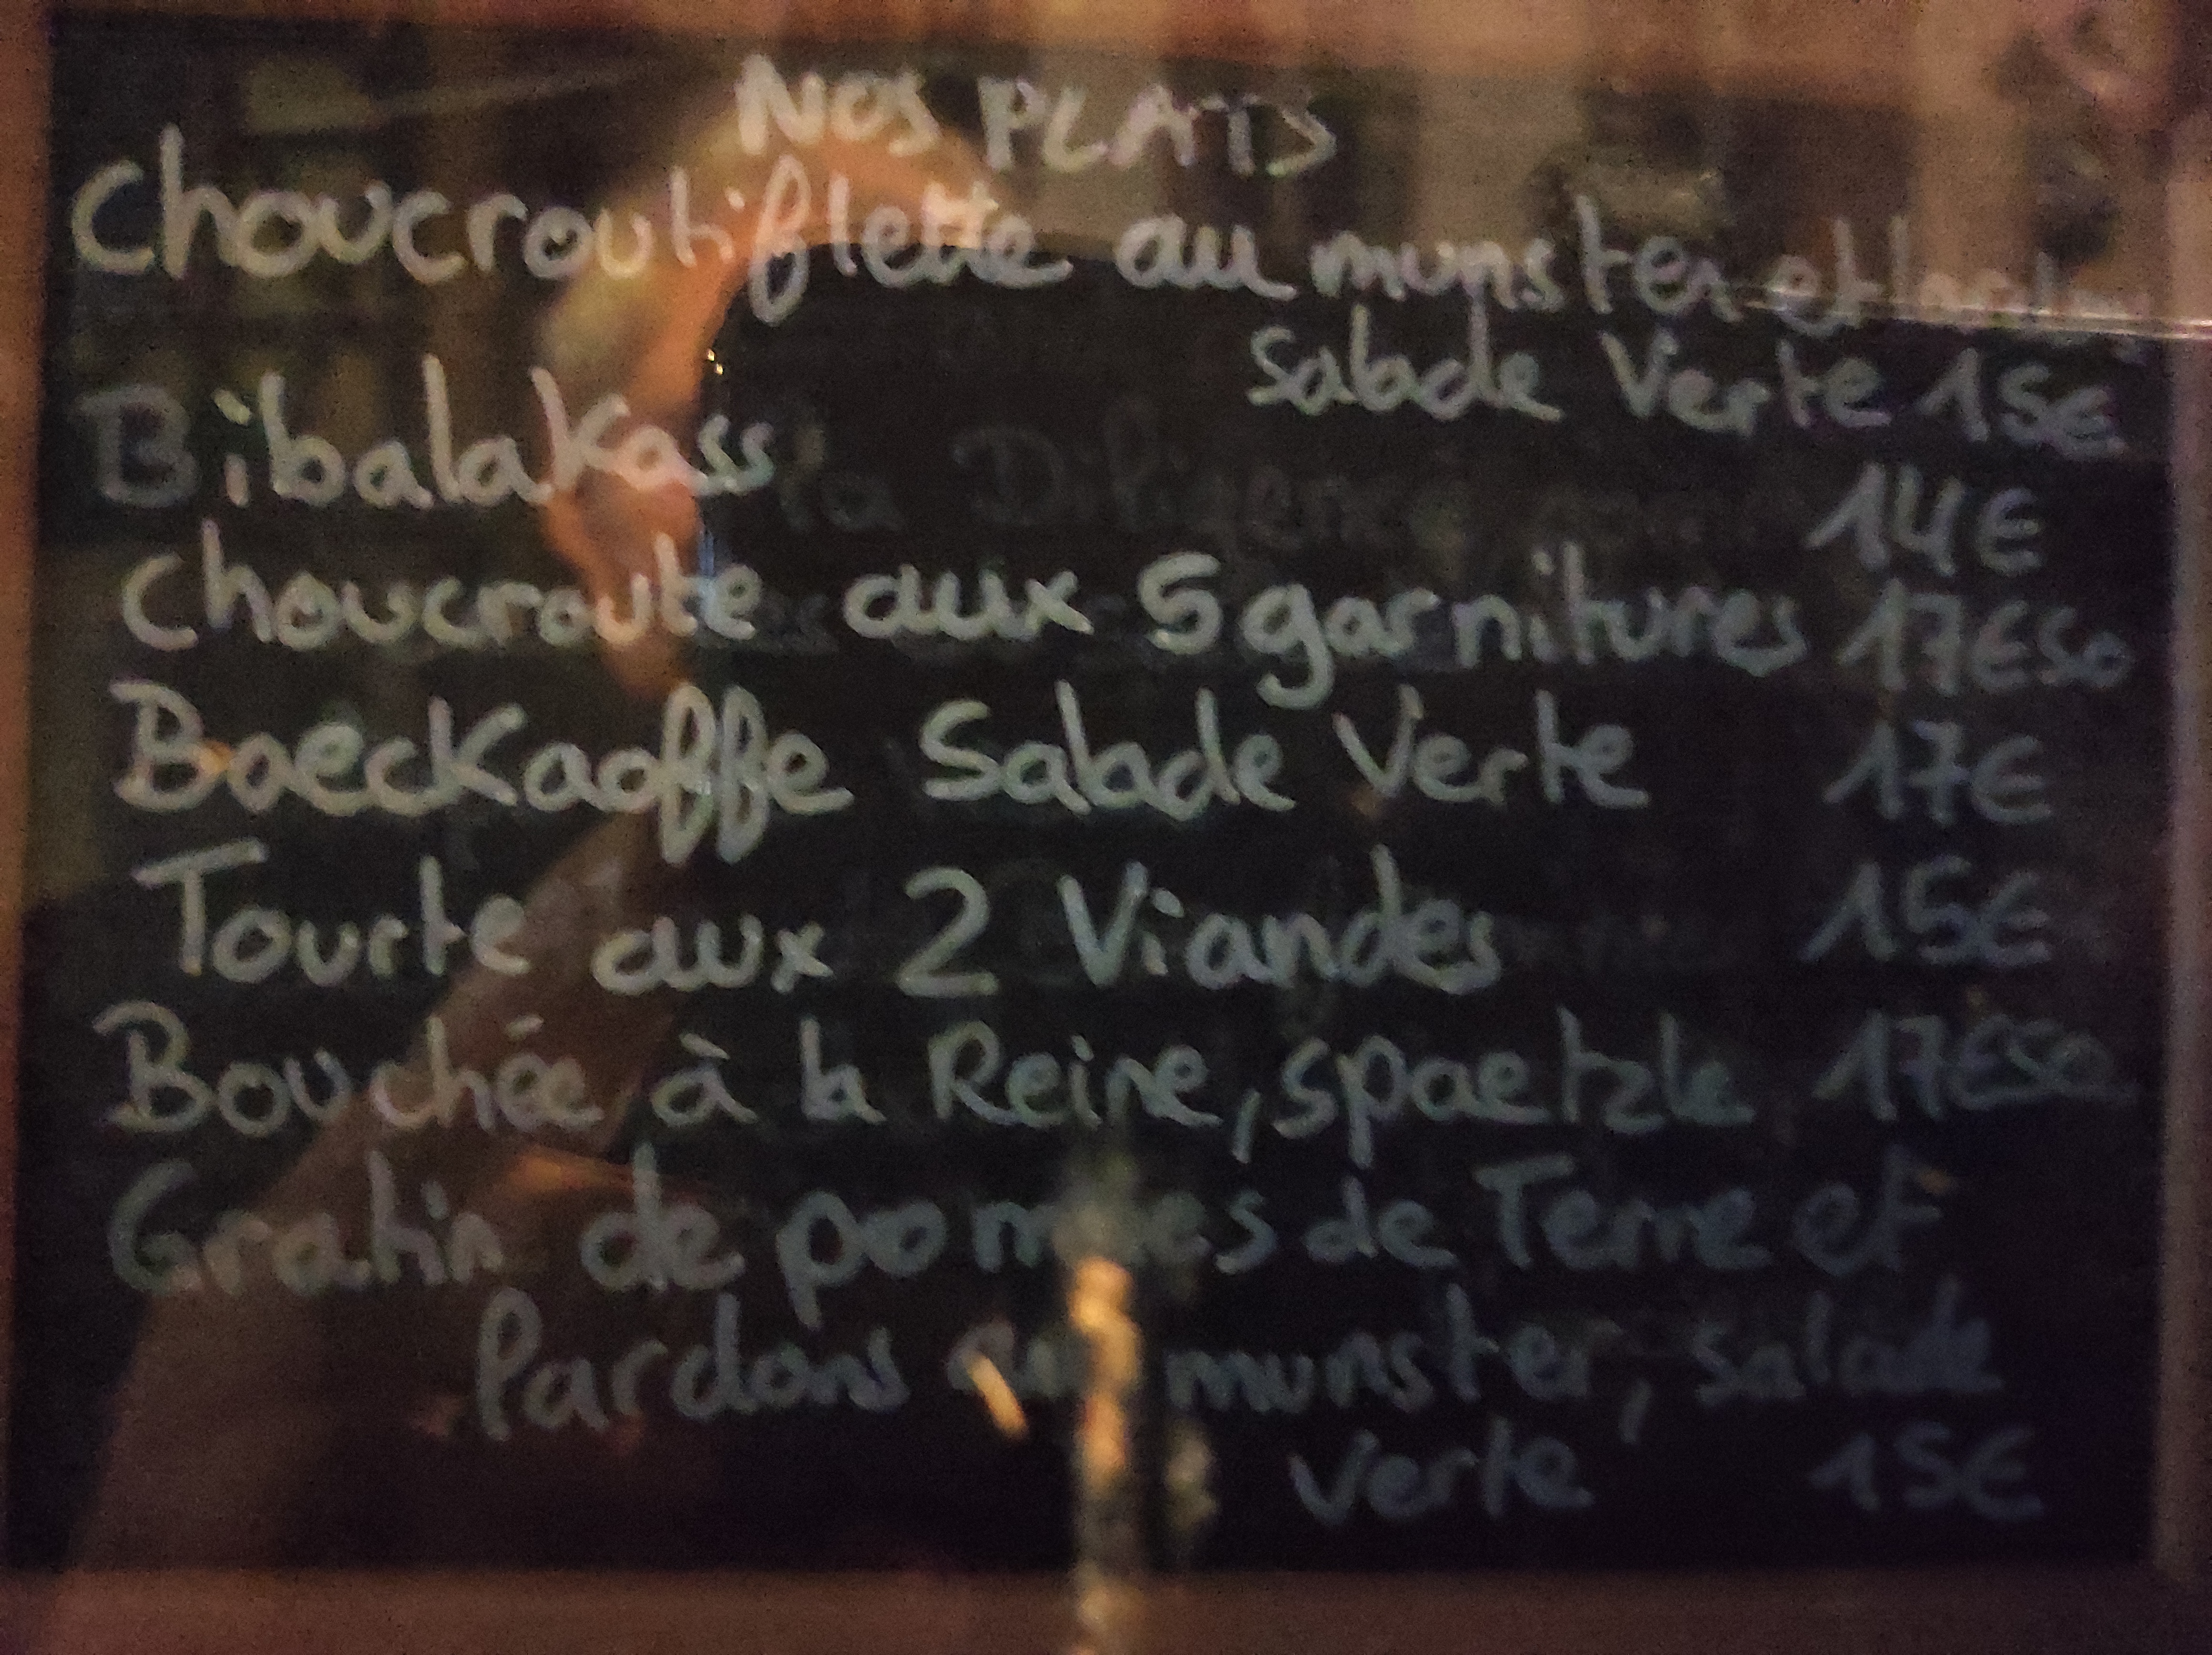 NOS PLATS
Choucroutiflette au munster et
Salade Verte 15€
Bibalakass
14€
Choucroute aux 5 garnitures 17€50
Baeckaoffe Salade Verte 17€
Tourte aux 2 Viandes 15€
Bouchée à la Reine, spaetzle 17€50
Gratin de pommes de Terre et
lardons au munster, salade
verte 15€